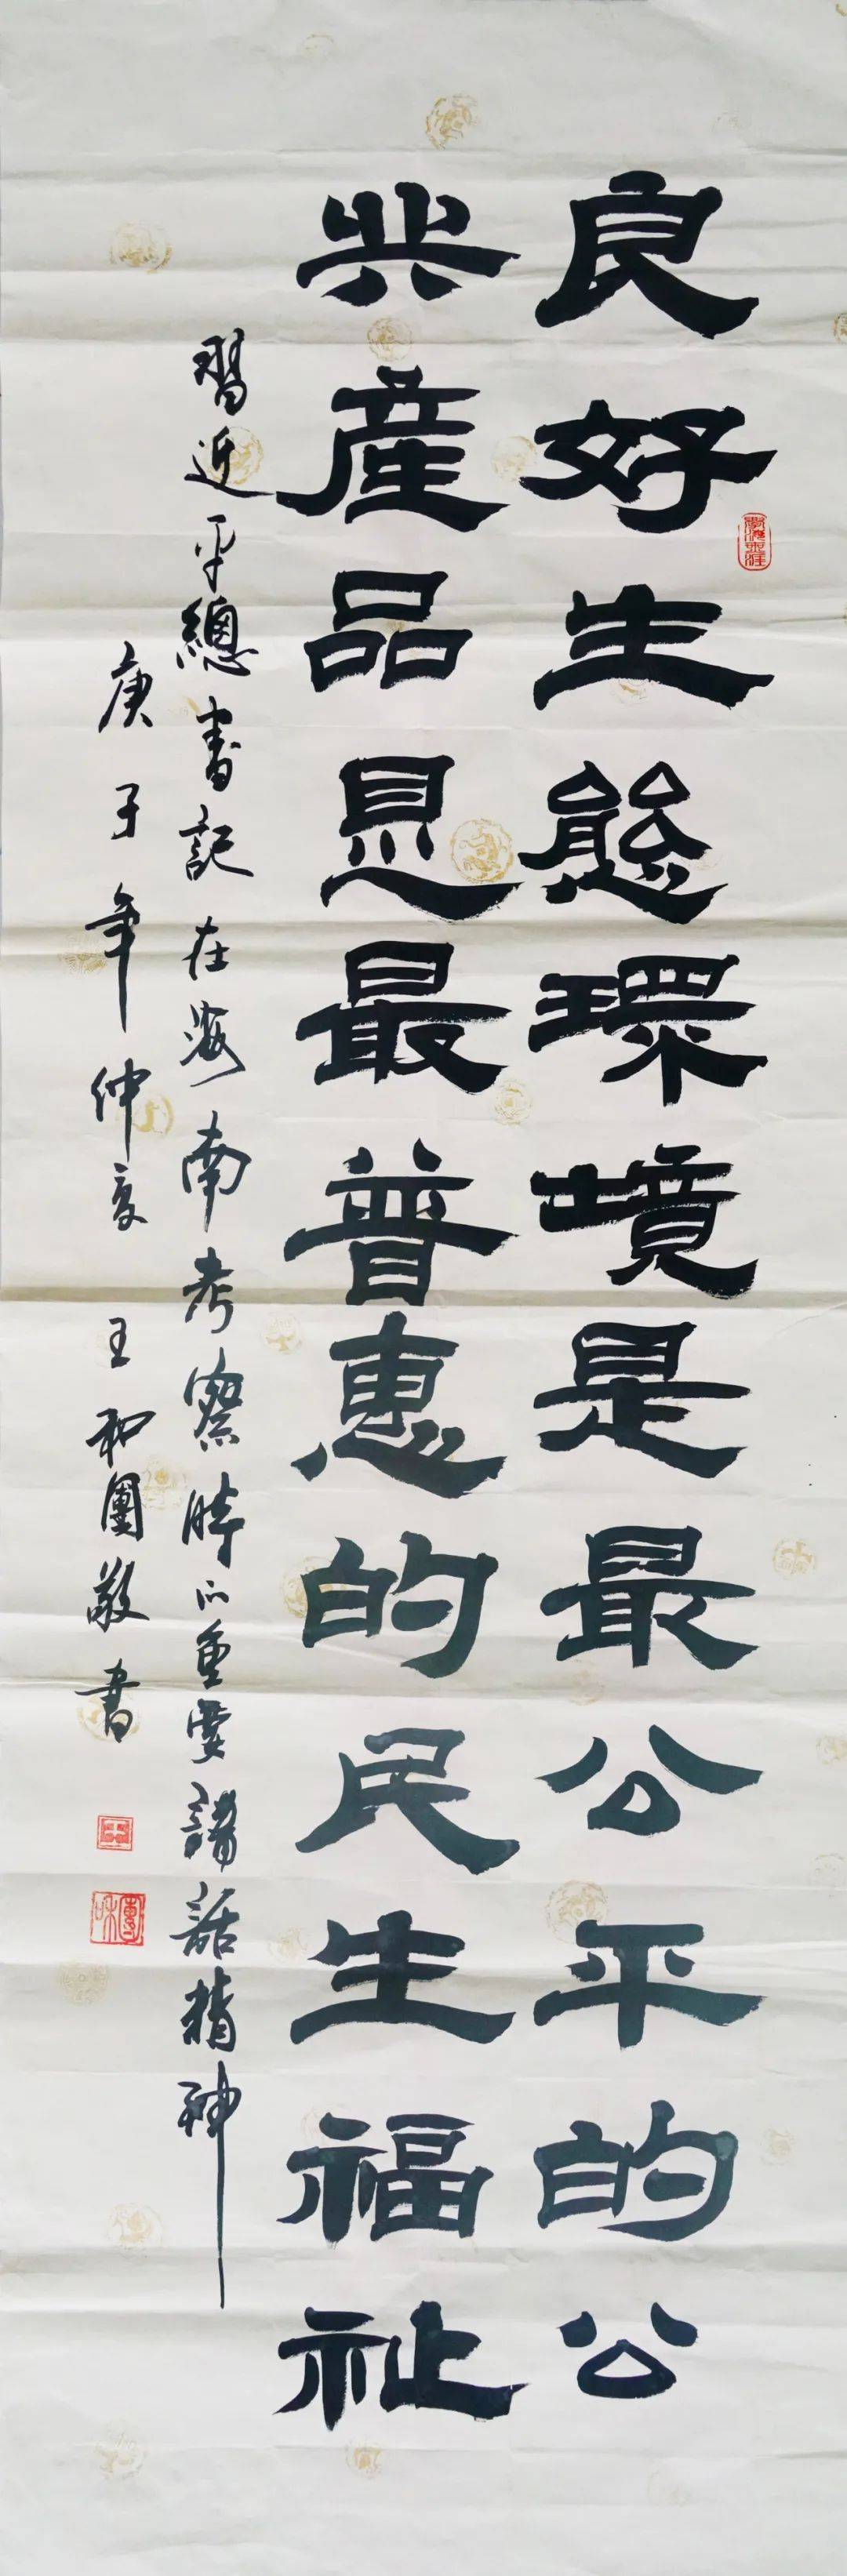 良好生態環境是最公平的公
共產品是最普惠的民生福祉
習近平總書記在海南考察時的重要講話精神
庚子年仲夏 王和團敬書